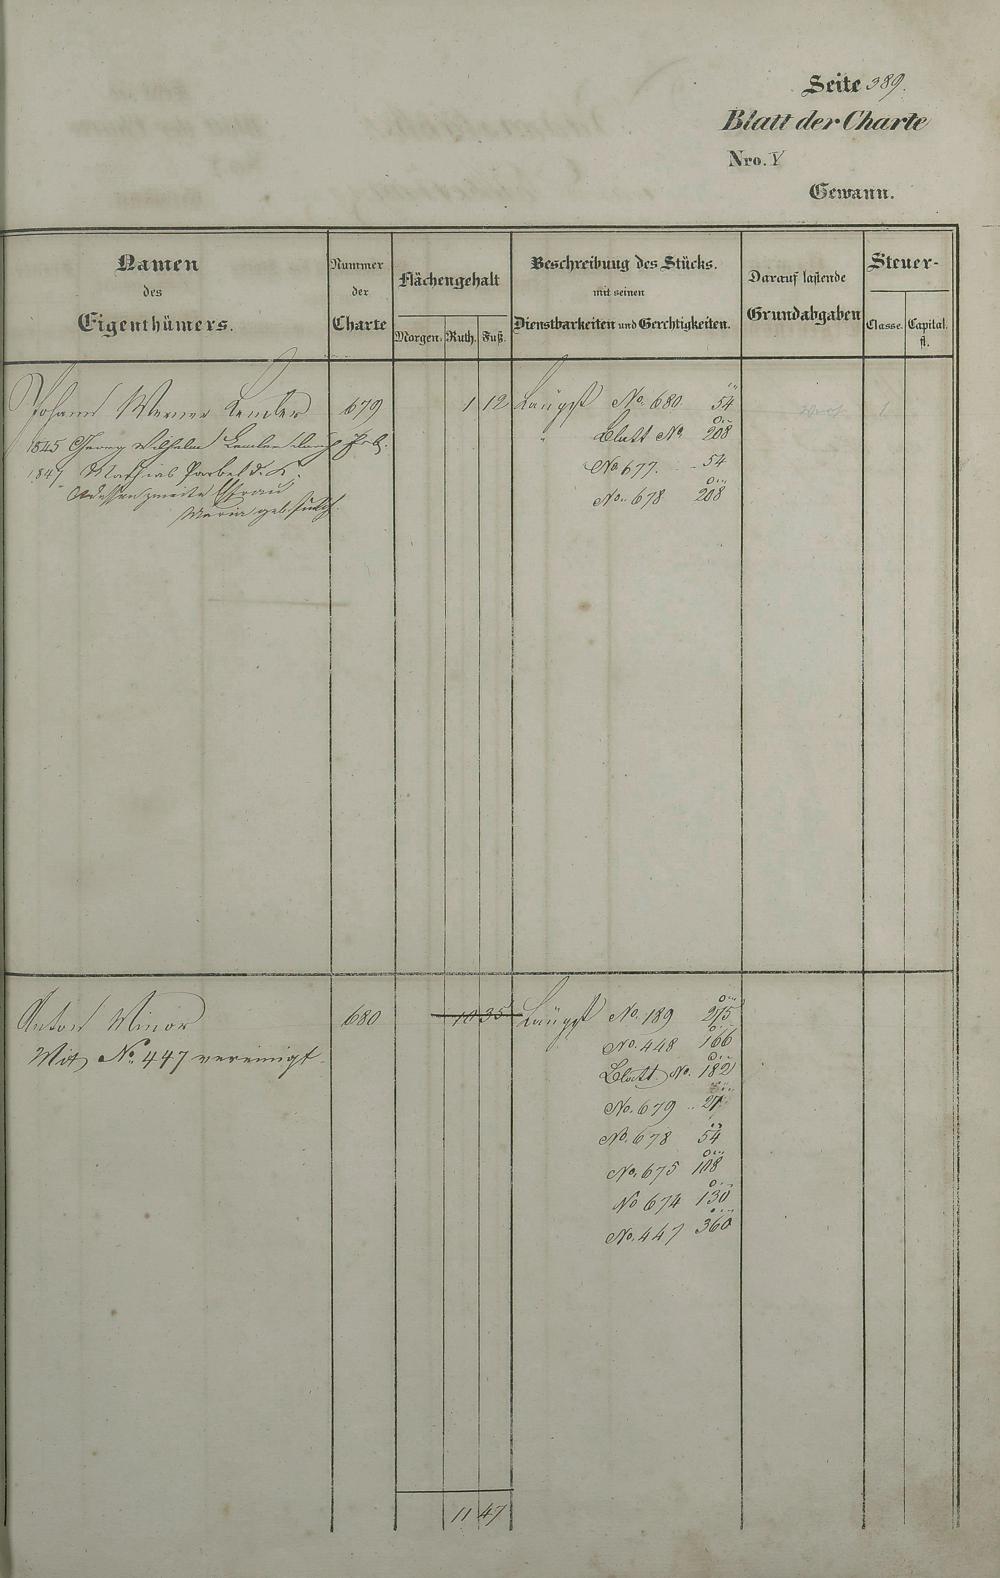 Seite 389.
Blatt der Charte
Nro. V
Gewann.
Namen
des
Eigenthümers.
Nummer
der
Charte
Flächengehalt
Morgen. Ruth. Fuß.
Beschreibung des Stücks.
mit seinen
Dienstbarkeiten und Gerechtigkeiten.
Darauf lastende
Grundabgaben
Steuer-
Classe. Capital.
fl.
Johann Werner 679 1 12 No. 680 54
1845 Georg Wilhelm durch
Blatt No 208
1847 Mathias
No 677. 54
dessen zweite Ehefrau
No. 678 208
Maria geb.
Anton Minor 680 10 35 No. 189 275
Mit No. 447 vereinigt
No. 448 166
Blatt No. 182
No. 679 27
No. 678 54
No. 675 108
No 674 130
No. 447 360
11 47